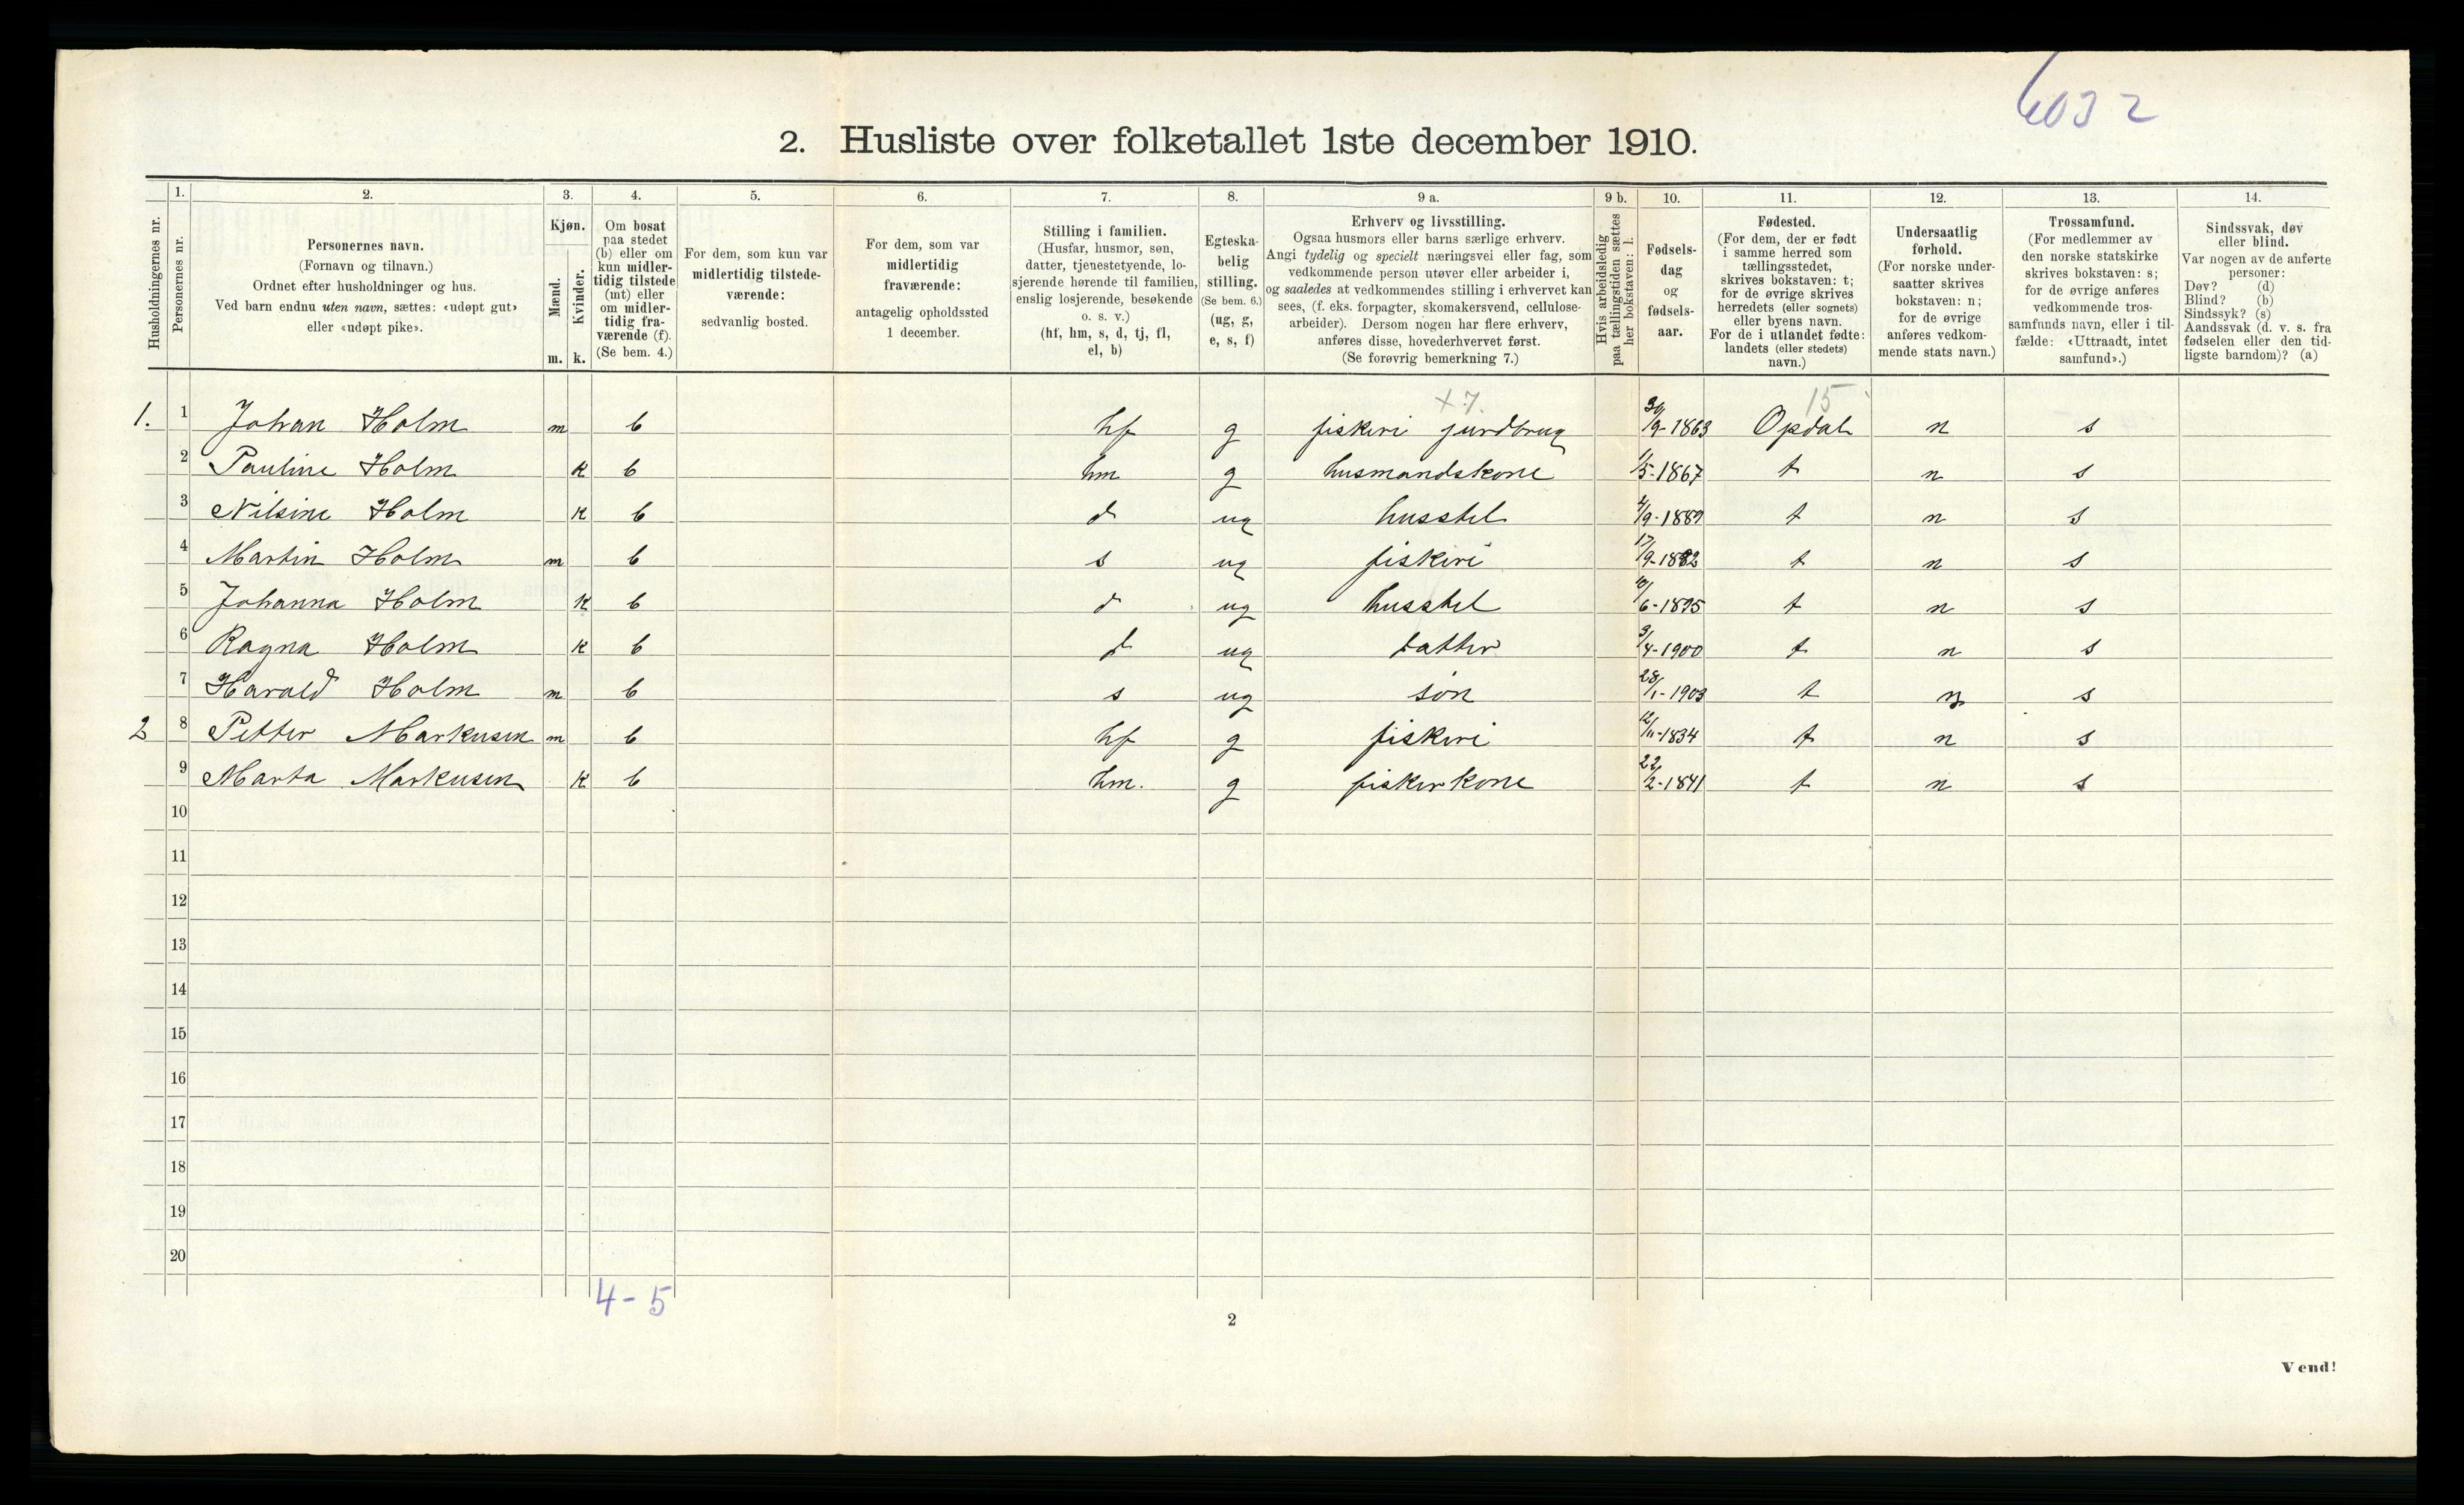 6032
2. Husliste over folketallet 1ste december 1910.
Husholdningernes nr.
1. Personernes nr.
2. Personernes navn.
(Fornavn og tilnavn.)
Ordnet efter husholdninger og hus.
Ved barn endnu uten navn, sættes: «udøpt gut»
eller «udøpt pike».
3. Kjøn.
Mænd. m.
Kvinder. k.
4. Om bosat
paa stedet
(b) eller om
kun midler-
tidig tilstede
(mt) eller
om midler-
tidig fra-
værende (f).
(Se bem. 4.)
5. For dem, som kun var
midlertidig tilstede-
værende:
sedvanlig bosted.
6. For dem, som var
midlertidig
fraværende:
antagelig opholdssted
1 december.
7. Stilling i familien.
(Husfar, husmor, søn,
datter, tjenestetyende, lo-
sjerende hørende til familien,
enslig losjerende, besøkende
o. s. v.)
(hf, hm, s, d, tj, fl,
el, b)
8. Egteska-
belig
stilling.
(Se bem. 6.)
(ug, g,
e, s, f)
9 a. Erhverv og livsstilling.
Ogsaa husmors eller barns særlige erhverv.
Angi tydelig og specielt næringsvei eller fag, som
vedkommende person utøver eller arbeider i,
og saaledes at vedkommendes stilling i erhvervet kan
sees, (f. eks. forpagter, skomakersvend, cellulose-
arbeider). Dersom nogen har flere erhverv,
anføres disse, hovederhvervet først.
(Se forøvrig bemerkning 7.)
9 b. Hvis arbeidsledig
paa tællingstiden sættes
her bokstaven: l.
10. Fødsels-
dag
og
fødsels-
aar.
11. Fødested.
(For dem, der er født
i samme herred som
tællingsstedet,
skrives bokstaven: t;
for de øvrige skrives
herredets (eller sognets)
eller byens navn.
For de i utlandet fødte:
landets (eller stedets)
navn.)
12. Undersaatlig
forhold.
(For norske under-
saatter skrives
bokstaven: n;
for de øvrige
anføres vedkom-
mende stats navn.)
13. Trossamfund.
(For medlemmer av
den norske statskirke
skrives bokstaven: s;
for de øvrige anføres
vedkommende tros-
samfunds navn, eller i til-
fælde: «Uttraadt, intet
samfund».)
14. Sindssvak, døv
eller blind.
Var nogen av de anførte
personer:
Døv? (d)
Blind? (b)
Sindssyk? (s)
Aandssvak (d. v. s. fra
fødselen eller den tid-
ligste barndom)? (a)
x 7. 15
1. 1 Johan Holm m b hf g fiskeri jurdbrug 30/9-1863 Opdal n s
2 Pauline Holm k b hm g husmandskone 1/5-1867 t n s
3 Nilsine Holm k b d ug husstel 4/9-1889 t n s
4 Martin Holm m b s ug fiskeri 17/9- t n s
5 Johanna Holm k b d ug husstel /6-1895 t n s
6 Ragna Holm k b d ug datter 3/4-1900 t n s
7 Harald Holm m b s ug søn 28/1-1903 t n s
2 8 Petter Markusen m b hf g fiskeri 12/11-1834 t n s
9 Marta Markusen k b hm. g fiskerkone 22/2-1841 t n s
10
11
12
13
14
15
16
17
18
19
20
4-5
2
Vend!